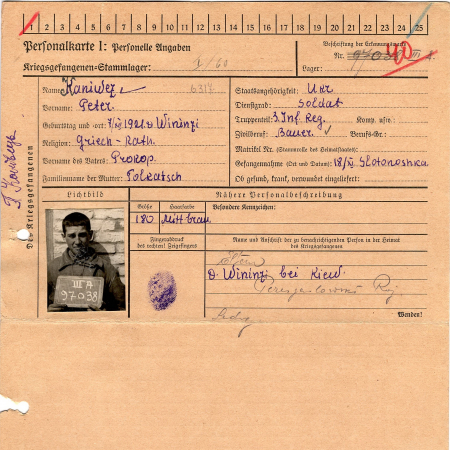 1 2 3 4 5 6 7 8 9 10 11 12 13 14 15 16 17 18 19 20 21 22 23 24 25
Personalkarte I: Personelle Angaben
Beschriftung der Erkennungsmarke
Nr.
Kriegsgefangenen-Stammlager: I/60
Lager:
Des Kriegsgefangenen
Name: Kaniwez 6317
Vorname: Peter.
Geburtstag und -ort: Wininzi
Religion: Griech-Kath.
Vorname des Vaters: Prokop.
Familienname der Mutter:
Staatsangehörigkeit: Ukr.
Dienstgrad: Soldat
Truppenteil: 3. Inf. Reg. Komp. usw.:
Zivilberuf: Bauer. Berufs-Gr.:
Matrikel Nr. (Stammrolle des Heimatstaates):
Gefangennahme (Ort und Datum): Slotonoshka
Ob gesund, krank, verwundet eingeliefert:
Lichtbild
III A
97038
Nähere Personalbeschreibung
Größe Haarfarbe Besondere Kennzeichen:
180 Mitt brau
Fingerabdruck
des rechten! Zeigefingers
Name und Anschrift der zu benachrichtigenden Person in der Heimat
des Kriegsgefangenen
D. Wininzi bei Kiew.
Wenden!